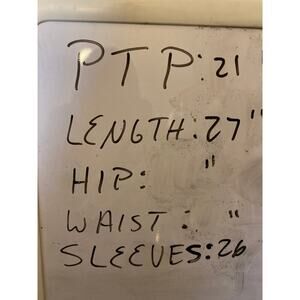 PTP: 21
LENGTH: 27"
HIP: "
WAIST: "
SLEEVES: 26